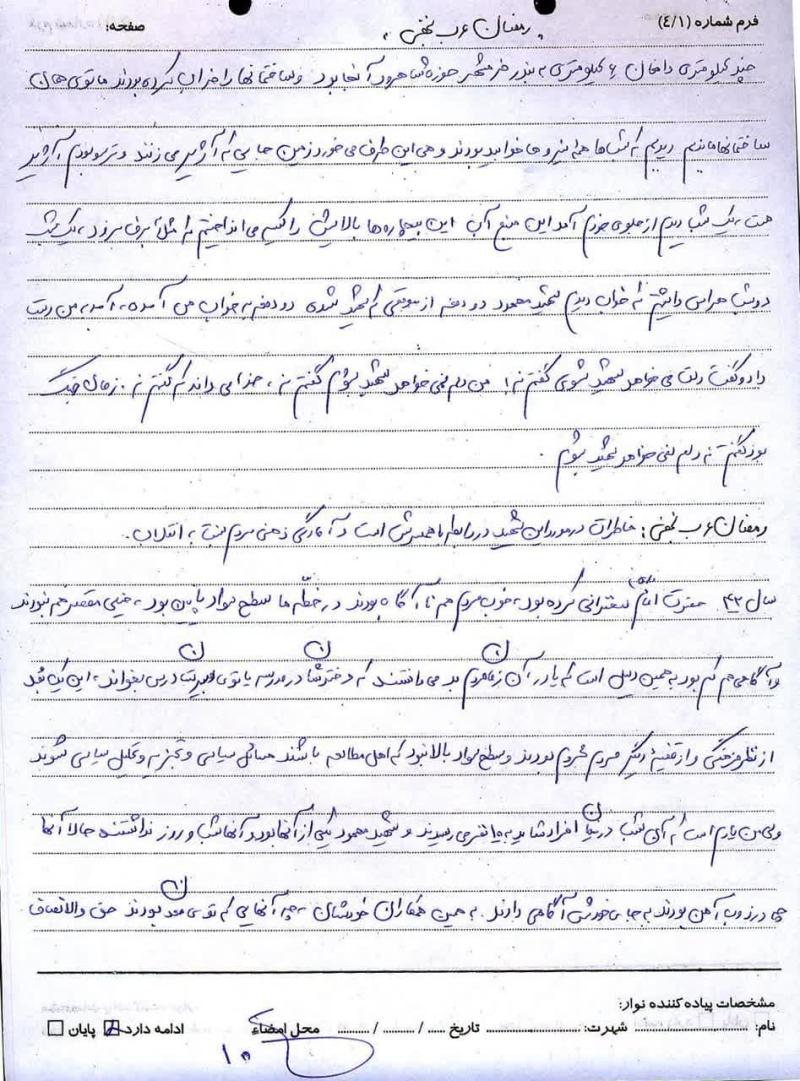 فرم شماره (۴/۱)
رمضان عرب نجفی
صفحه:
چند کیلومتری داخل ۶ کیلومتری به بندر خرمشهر حوزه شاهرود آنجا بود و ساختمانها را خراب کرده بودند ما توی همان
ساختمانها ماندیم دیدیم که شبها همه نیروها خوابیده بودند و هی این طرف می خورد زمین جایی که آژیر می زنند و ترسو بودم، آژیر
یک شب دیدم از جلوی خودم آمد این منبع آب این بیچاره ها بالایش را گلیم می انداختیم که مثلاً برف نرود، یک شب
دو شب هراس داشتم که خواب دیدم شهید محمود دو دفعه از موقعی که شهید شده دو دفعه به خواب من آمده، آمد، من دست
داد و گفت دلت می خواهد شهید شوی گفتم نه! من دلم نمی خواهد شهید بشوم گفتم نه، خدا می داند که گفتم نه. زمان جنگ
بود گفتم نه دلم نمی خواهد شهید بشوم.
رمضان عرب نجفی: خاطرات در مورد این شهید در رابطه با همسرش است و آمادگی ذهنی مردم نسبت به انقلاب.
سال ۴۲ حضرت امام سخنرانی کرده بود، خوب مردم هم ناآگاه بودند در خطّه ما سطح سواد پایین بود، خیلی مقصر هم نبودند
و آگاهی هم کم بود به همین دلیل است که پدر آن زمان مردم بد می دانستند که دخترشان در مدرسه یا توی دبیرستان درس بخواند، این یک بُعد
از نظر فرهنگی و از قضیه دیگر مردم محروم بودند و سطح سواد بالا نبود که اهل مطالعه باشند مسائل سیاسی و تجزیه و تحلیل سیاسی شوند
ولی من یادم است که آن شب در بیان افراد شاید به ۱۵ نفر می رسیدند و شهید محمود یکی از آنها بود و آنها شب و روز نداشتند حالا آنها
چی در ذوب آهن بودند به جای خودش آگاهی دارند. به همین همکاران خودشان، چه آنهایی که توی معدن بودند حق والانصاف
مشخصات پیاده کننده نوار:
نام: .......... شهرت: .......... تاریخ ..... / ..... / ..... محل امضاء ادامه دارد ☑ پایان ☐
۱۰